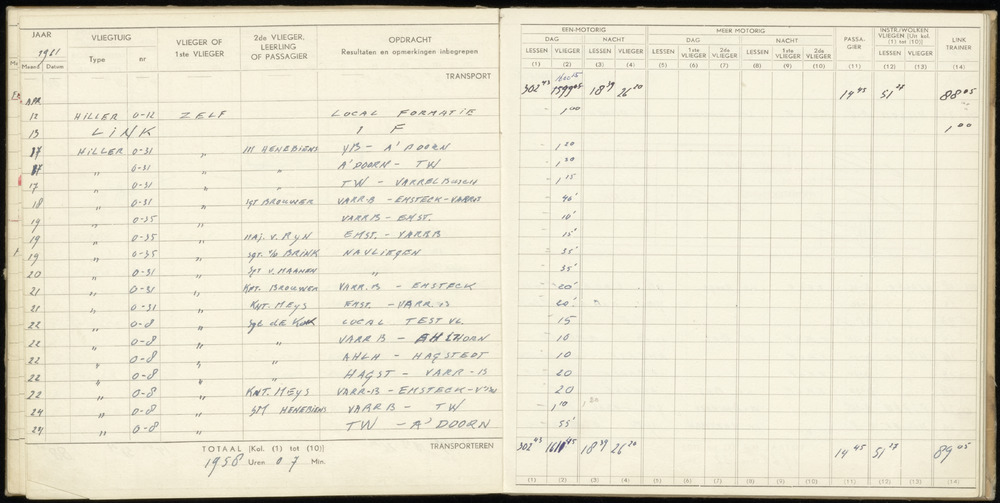 JAAR VLIEGTUIG VLIEGER OF 1ste VLIEGER 2de VLIEGER, LEERLING OF PASSAGIER OPDRACHT Resultaten en opmerkingen inbegrepen
1961 Maand Datum Type nr
TRANSPORT
APR.
12 HILLER 0-12 ZELF LOCAL FORMATIE
13 LINK I F
17 HILLER 0-31 " YB - A'DOORN
17 " 0-31 " " A'DOORN - TW
17 " 0-31 " " TW - VARRELBUSCH
18 " 0-31 " SGT BROUWER VARR-B - EMSTECK - VARRB
19 " 0-35 VARRB - EMST.
19 " 0-35 " MAJ. V. RYN EMST. - VARRB
19 " 0-35 " SGT. V/D BRINK NAVLIEGEN
20 " 0-31 " SGT V. MAANEN "
21 " 0-31 " KNT. BROUWER VARR.B - EMSTECK
21 " 0-31 " KNT. MEYS EMST. - VARR.B
22 " 0-8 " SGT. DE KOK LOCAL TEST VL.
22 " 0-8 " " VARR B - AHLHORN
22 " 0-8 " " AHLH - HAGSTEDT
22 " 0-8 " " HAGST - VARR-B
22 " 0-8 " KNT. MEYS VARR-B - EMSTECK -
24 " 0-8 " SM HENEBIENS VARRB - TW
24 " 0-8 " " TW - A'DOORN
TOTAAL (Kol. (1) tot (10)) TRANSPORTEREN
1958 Uren 07 Min.
EEN-MOTORIG MEER MOTORIG PASSAGIER INSTR./WOLKEN VLIEGEN (Uit kol. (1) tot (10)) LINK TRAINER
DAG NACHT DAG NACHT
LESSEN VLIEGER LESSEN VLIEGER LESSEN 1ste VLIEGER 2de VLIEGER LESSEN 1ste VLIEGER 2de VLIEGER LESSEN VLIEGER
(1) (2) (3) (4) (5) (6) (7) (8) (9) (10) (11) (12) (13) (14)
302 43 1599 05 18 39 26 20 14 45 51 27 88 05
- 1 00
1 00
- 1 20
- 1 30
- 1 15
- 40'
- 10'
- 15'
- 35'
- 35'
- 20'
- 20'
- 15
- 10
- 10
- 20
- 20
- 1 10
- 55'
302 43 1610 45 18 39 26 20 14 45 51 27 89 05
(1) (2) (3) (4) (5) (6) (7) (8) (9) (10) (11) (12) (13) (14)